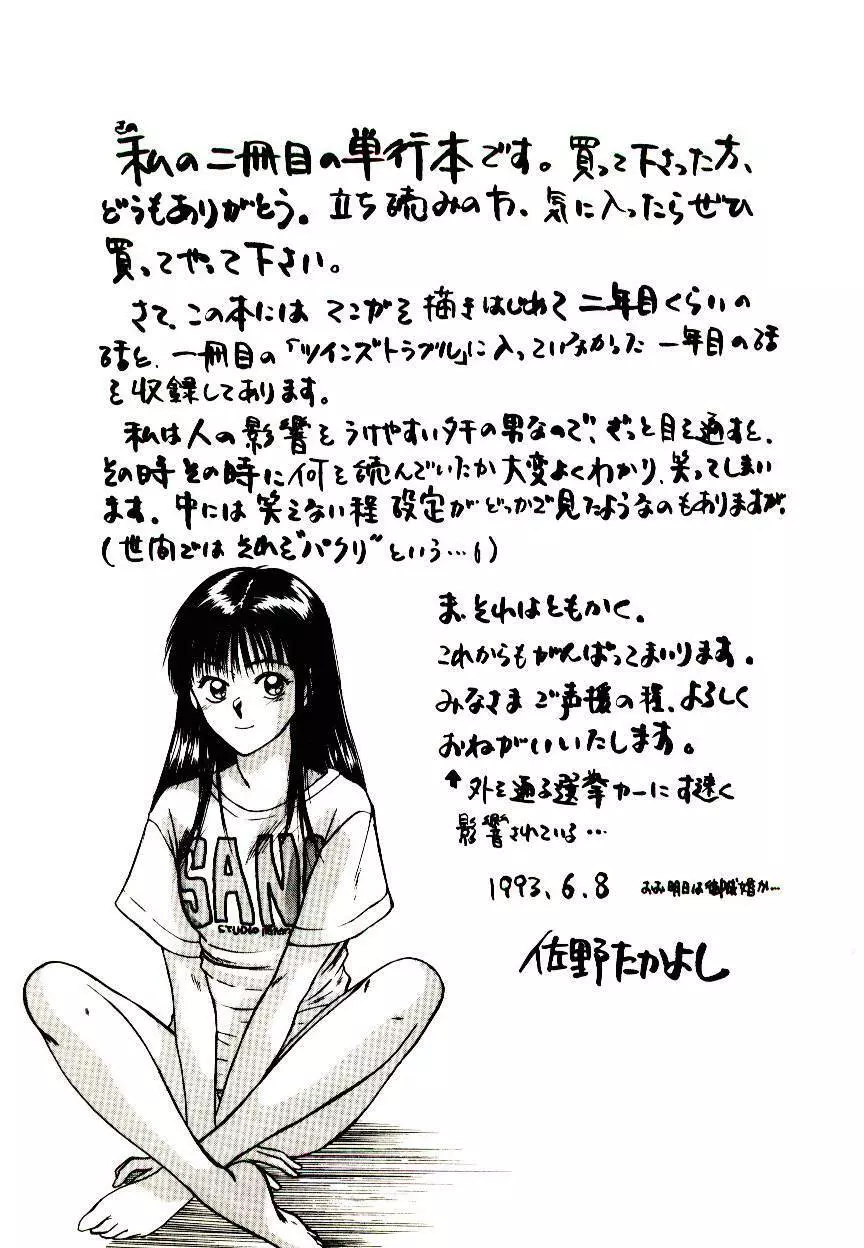 さの
私の二冊目の単行本です。買って下さった方、
どうもありがとう。立ち読みの方、気に入ったらぜひ
買ってやって下さい。
さて、この本には マンガを描きはじめて 二年目くらいの
話と、一冊目の「ツインズトラブル」に入っていなかった 一年目の話
を収録してあります。
私は人の影響をうけやすいタチの男なので、ざっと目を通すと、
その時その時に何を読んでいたか大変よくわかり、笑ってしまい
ます。中には笑えない程 設定がどっかで見たようなのもありますが、
(世間では それを"パクリ"という…!)
ま、それはともかく。
これからもがんばってまいります。
みなさま ご声援の程、よろしく
おねがいいたします。
↑外を通る選挙カーにす速く
影響されている…
1993.6.8 おお明日は御成婚か…
佐野たかよし
SAN
STUDIO